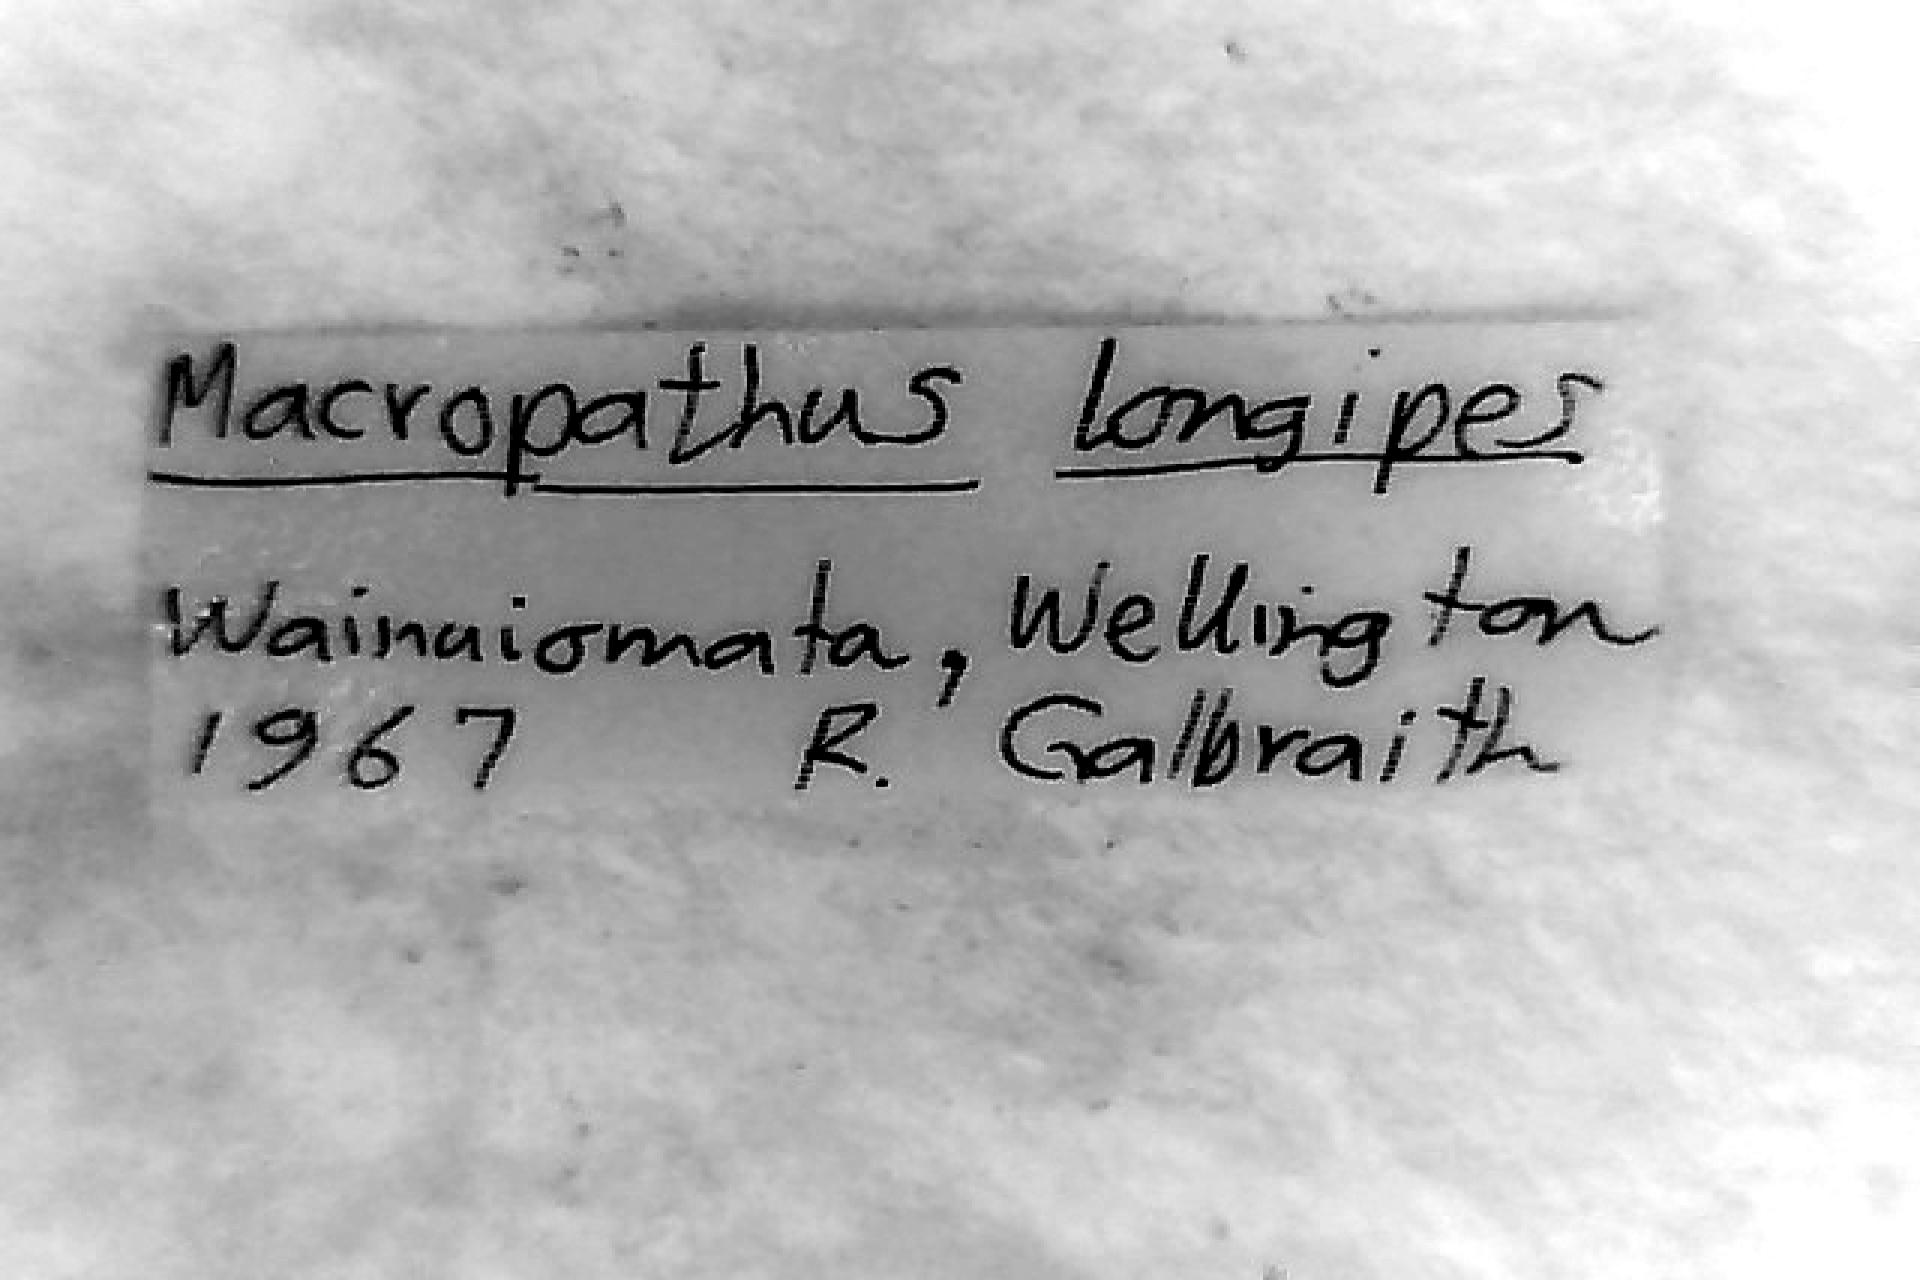 Macropathus longipes
Wainuiomata, Wellington
1967 R. Galbraith